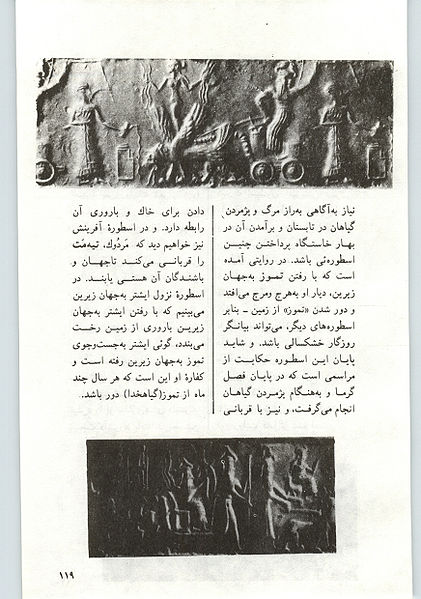 نیاز به‌آگاهی به‌راز مرگ و پژمردن
گیاهان در تابستان و برآمدن آن در
بهار خاستگاه پرداختن چنین
اسطوره‌ئی باشد. در روایتی آمده
است که با رفتن تموز به‌جهان
زیرین، دیار او به‌هرج ومرج می‌افتد
و دور شدن «تموز» از زمین - بنابر
اسطوره‌های دیگر، می‌تواند بیانگر
روزگار خشکسالی باشد. و شاید
پایان این اسطوره حکایت از
مراسمی است که در پایان فصل
گرما و به‌هنگام پژمردن گیاهان
انجام می‌گرفت، و نیز با قربانی
دادن برای خاك و باروری آن
رابطه دارد. و در اسطورهٔ آفرینش
نیز خواهیم دید که مَردُوك، تیه‌مَت
را قربانی می‌کند تاجهان و
باشندگان آن هستی یابند. در
اسطورهٔ نزول ایشتر به‌جهان زیرین
می‌بینیم که با رفتن ایشتر به‌جهان
زیرین باروری از زمین رخت
می‌بندد، گوئی ایشتر به‌جست‌وجوی
تموز به‌جهان زیرین رفته است و
کفارهٔ او این است که هر سال چند
ماه از تموز(گیاهخدا) دور باشد.
۱۱۹